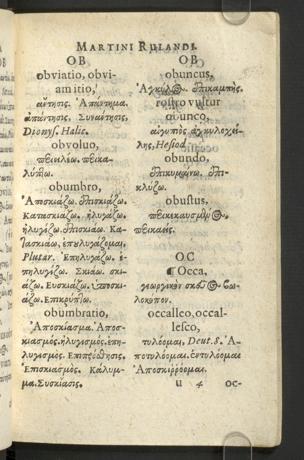 MARTINI RULANDI.
OB
obviatio, obvi-
am itio,
αὔτησις. Ἀπάντημα.
ἀπάντησις. Συναύτησις,
Dionys. Halic.
obvoluo,
περικα-
λύπτω.
obumbro,
Ἀποσκιάζω. ἐπισκιάζω.
Κατασκιάζω. ἠλυγάζω.
ἠλυγίζω. ἐπισκιάω. Κα-
τασκιάω. ἐπηλυγάζομαι,
Plutar. Ἐπηλυγάζω. ἐ-
πηλυγίζω. Σκιάω. σκι-
άζω. Ευσκιάζω. ὑποσκι-
άζω. Ἐπικρύπτω.
obumbratio,
Ἀποσκίασμα. Ἀποσ-
κιασμός. ἠλυγισμός. ἐπη-
λυγισμός.
Ἐπισκιασμός. Κάλυμ-
μα. Συσκίασις.
OB
obuncus,
Ἀγκύλος. ἐπικαμπής.
rostro vultur
obunco,
αἰγυπιὸς ἀγκυλοχεί-
λης, Hesiod.
obundo,
ἐπικυμαίνω. ἐπι-
κλύζω.
obustus,
περικεκαυσμένος.
περικαής.
OC
¶ Occa,
γεωργικὸν βω-
λοκοπον.
occalleo, occal-
lesco,
τυλόομαι, Deut. 8. Ἀ-
ποτυλόομαι. ἐντυλόομαι
Ἀποσκιῤῥόομαι.
u 4 oc-